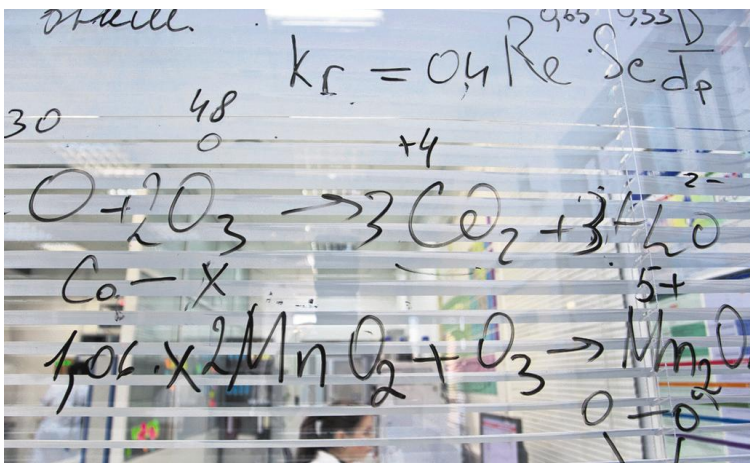 kг = 0,4 Re^0,65 · Sc^0,33 D/dp
30 48
0 +4
O + 2O₃ → 3CO₂ + 3H₂O
2-
C₀ — x 5+
1,06 · x 2MnO₂ + O₃ → Mn₂O
O — O